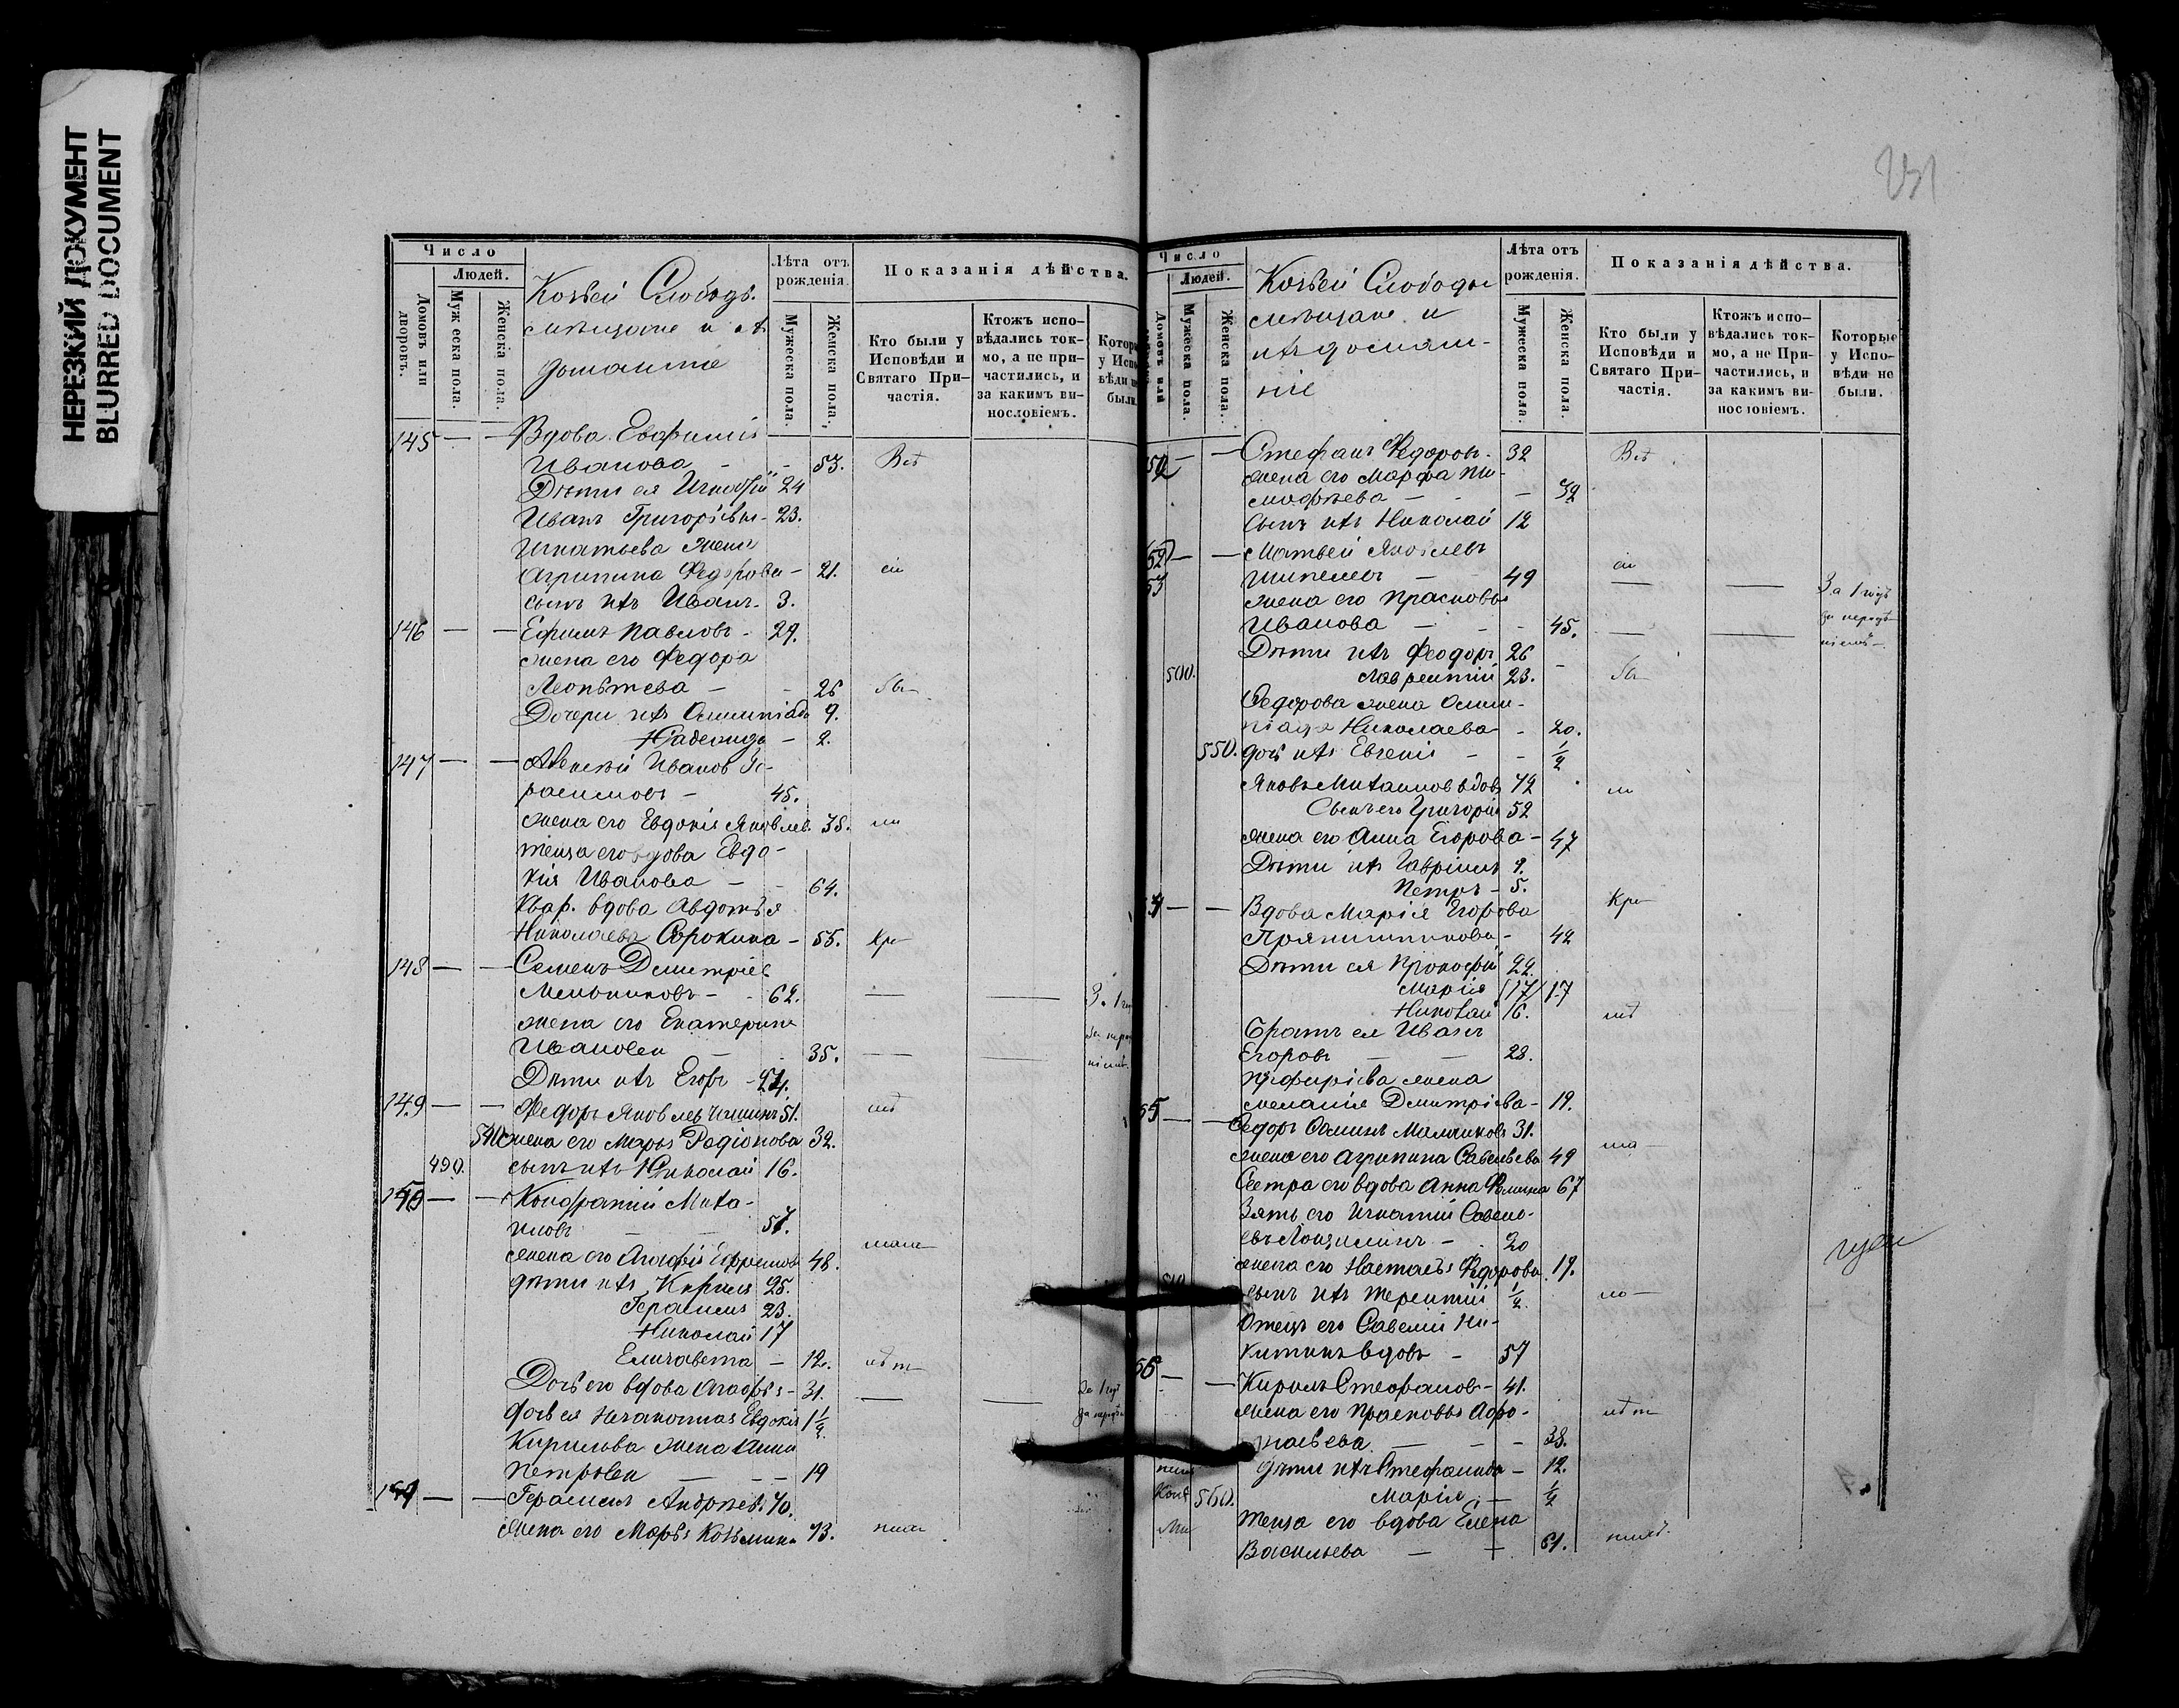 НЕРЕЗКИЙ ДОКУМЕНТ
BLURRED DOCUMENT
Число
Людей.
Домовъ или дворовъ.
Мужеска пола.
Женска пола.
Козьей Слободы.
мѣщане и ихъ
домашніе
Лѣта отъ рожденія.
Мужеска пола.
Женска пола.
Показанія дѣйства.
Кто были у Исповѣди и Святаго Причастія.
Ктожъ исповѣдались токмо, а не причастились, и за какимъ винословіемъ.
145 — — Вдова Евфимія
Иванова - - 53. Всѣ
Дѣти ея Игнатій 24
Иванъ Григорьевы - 23.
Игнатьева жена
Агрипина Федорова - 21. сіи
сынъ ихъ Иванъ - 3.
146 — — Ефимъ Павловъ - 29.
жена его Федора
Леонтьева — - 26 бы
Дочери ихъ Олимпіада 9.
Надежда — 2.
147 — — Алексѣй Ивановъ Ге-
расимовъ — 45.
жена его Евдокія Яковлев. 38. ли
теща его вдова Евдо-
кія Иванова — - 64.
Квар. вдова Авдотья
Николаева Сорокина - 55. Кре
148 — — Семенъ Дмитріев
Мельниковъ - - 62. — — За 1 го
жена его Екатерина
Иванова — - 35. — —
Дѣти ихъ Егоръ - 24.
149 — — Федоръ Яковлев 51.
540 жена его Марья Родіонова 32.
490. сынъ ихъ Николай 16.
150 — — Кондратій Миха-
иловъ — — 57.
жена его Агафья Ефремова 48.
дѣти ихъ Кирилъ 25.
Герасимъ 23.
Николай 17
Елизавета — 12.
Дочь его вдова Агафья - 31. — — За 1 годъ
дочь ея незаконная Евдокія 1 1/2
Кирилова жена Анна
Петрова — - - 19
151 — — Герасимъ Андреев. 70.
жена его Марья Козьмина 73.
231
Число
Людей.
Домовъ или
Мужеска пола.
Женска пола.
Козьей Слободы
мѣщане и
ихъ домаш-
ніе
Лѣта отъ рожденія.
Мужеска пола.
Женска пола.
Показанія дѣйства.
Кто были у Исповѣди и Святаго Причастія.
Ктожъ исповѣдались токмо, а не Причастились, и за какимъ винословіемъ.
Которые у Исповѣди не были.
52 — — Стефанъ Федоровъ - 32 Всѣ
жена его Марфа Ти-
мофѣева — - - 32
Сынъ ихъ Николай 12
53 — — Матвей Яковлевъ
Шипелевъ — — 49 сіи — — За 1 годъ
жена его Прасковья
Иванова — - - 45. — —
Дѣти ихъ Феодоръ 26
500. Лаврентій 23. бы
Федорова жена Олим-
піада Николаева - 20.
550. дочь ихъ Евгенія - - 1/2
Яковъ Михаиловъ вдовъ 72 ли
Сынъ его Григорій 52
жена его Анна Егорова - 47
Дѣти ихъ Гавріилъ 9.
Петръ - 5.
54 — — Вдова Марія Егорова Кре
Прянишникова - 42
Дѣти ея Прокофій 22.
Марія 17 17
Николай 16.
Братъ ея Иванъ
Егоровъ — — 28.
жена
Меланія Дмитріева - 19.
55 — — Федоръ Мальчиковъ 31.
жена его Агрипина Савельева 49
Сестра его вдова Анна Фомина 67
Зять его Игнатій Савель-
евъ - 20
жена его Настасья Федорова 19.
510 сынъ ихъ Терентій 1/2
Отецъ его Савелій Ни-
китинъ вдовъ - 57
56 — — Кирилъ Стефановъ - 41.
жена его Прасковья Афо-
насьева — - - 38.
дѣти ихъ Стефанида — 12.
560. Марія — 1/2
Теща его вдова Елена
Васильева — + 61.